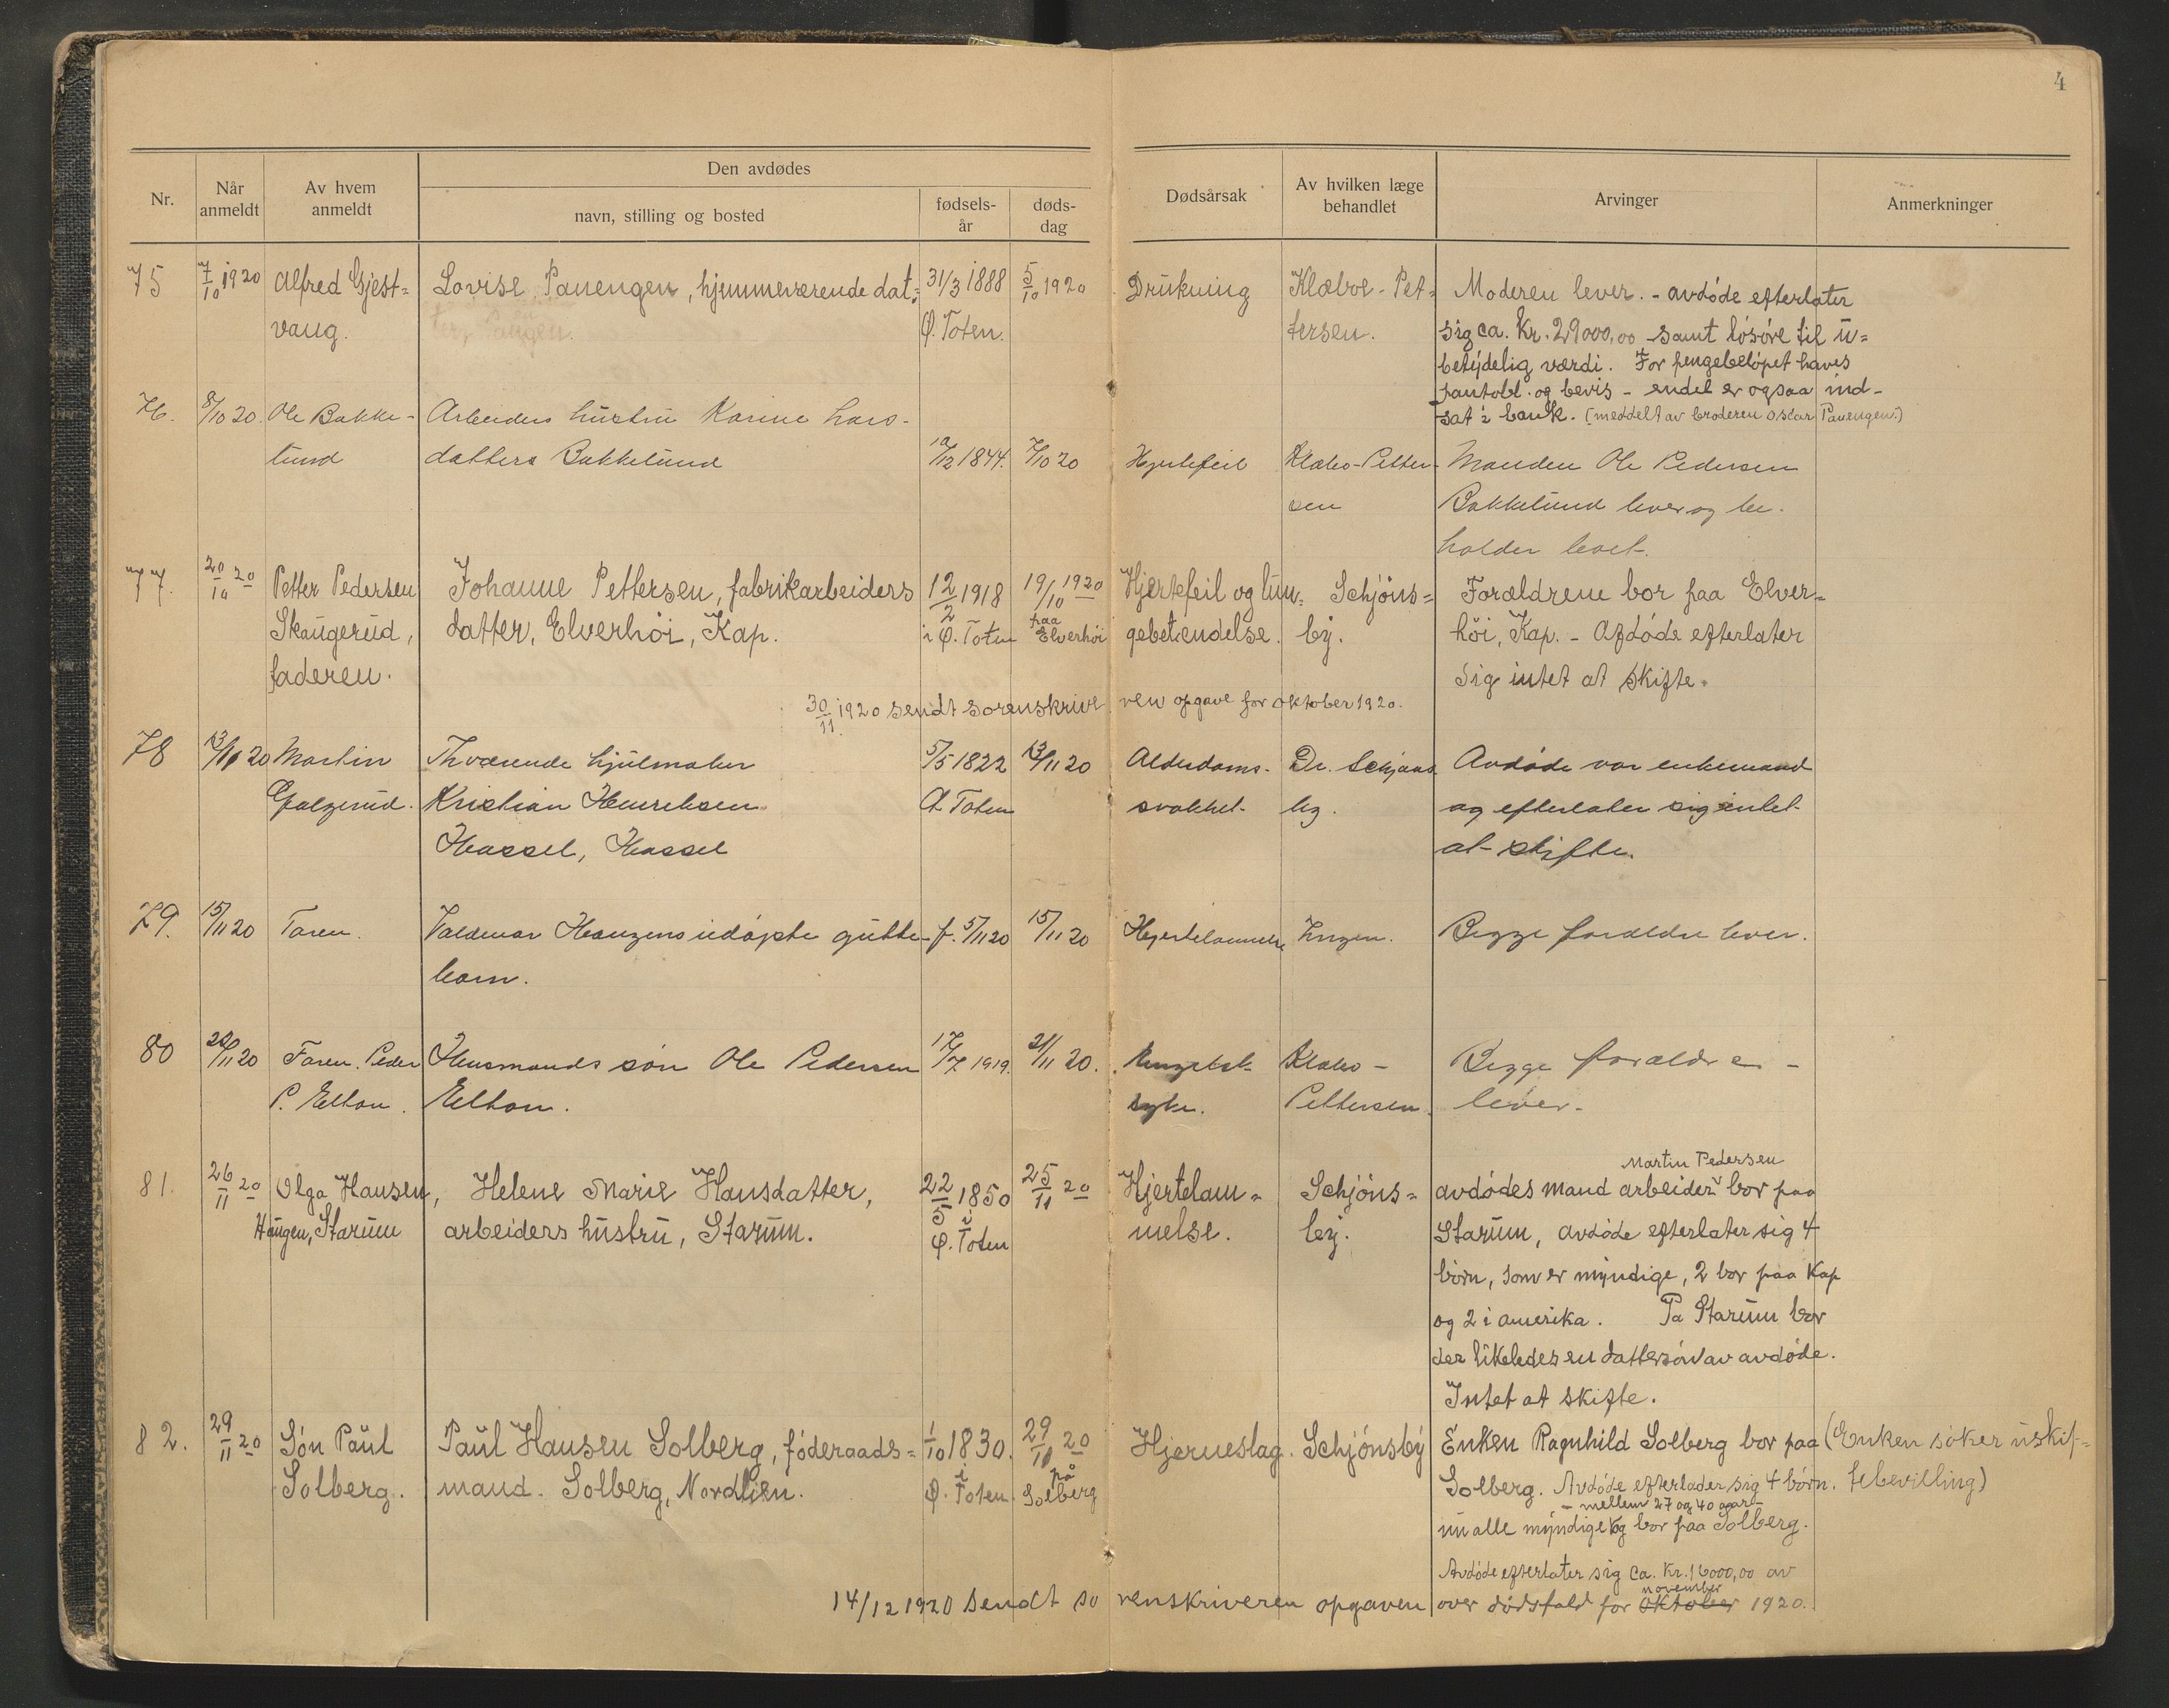 4
Nr.
Når anmeldt
Av hvem anmeldt
Den avdødes
navn, stilling og bosted
fødsels-år
døds-dag
Dødsårsak
Av hvilken læge behandlet
Arvinger
Anmerkninger
75
7/10 1920
Alfred Gjest=
vang.
Lovise Pauengen, hjemmeværende dat=
31/3 1888
Ø. Toten.
5/10 1920
Drukning
Klæboe-Pet=
tersen.
Moderen lever. - avdøde efterlater
sig ca. kr. 29000,00 samt løsøre til u=
betydelig værdi. For pengebeløpet haves
pantobl. og bevis - endel er ogsaa ind-
sat i bank. (meddelt av broderen Oskar Pauengen.)
76.
8/10 20.
Ole Bakke-
lund
Arbeiders hustru Karine Lars-
datters Bakkelund
10/12 1844.
7/10 20
Hjertefeil
Klæbo-Petter-
sen
Manden Ole Pedersen
Bakkelund lever og be-
holder boet.
77.
20/10 20
Petter Pedersen
Skaugerud,
faderen.
Johanne Pettersen, fabrikarbeiders
datter, Elverhøi, Kap.
12/2 1918
i Ø. Toten
19/10 1920
paa
Elverhøi
Hjertefeil og lun=
gebetændelse.
Schjøns=
by.
Forældrene bor paa Elver=
høi, Kap. - Afdøde efterlater
sig intet at skifte.
30/11 1920 sendt sorenskriveren opgave for oktober 1920.
78
13/11 20
Martin
Kristian Henriksen
Hassel, Hassel
hjulmaker
5/5 1822
Ø Toten
13/11 20
Alderdoms-
svakhet.
Dr. Schjøns
by.
Avdøde var enkemand
og efterlater sig intet
at skifte.
79.
15/11 20
Faren.
Valdemar Haugens udøpte gutte-
barn.
f. 5/11 20
15/11 20
Hjertelammelse
Ingen.
Begge forældre lever.
80
22/11 20
Faren. Peder
P. Elton.
Husmands søn Ole Pedersen
Elton.
17/7 1919.
21/11 20.
syke.
Klæbo-
Pettersen.
Begge forældre -
lever.
81.
26/11 20
Olga Hansen,
Haugen, Starum
Helene Marie Hansdatter,
arbeiders hustru, Starum.
22/5 1850
i
Ø. Toten
25/11 20
Hjertelam=
melse.
Schjøns=
by.
Martin Pedersen
avdødes mand arbeider bor paa
Starum, avdøde efterlater sig 4
børn, som er myndige, 2 bor paa Kap
og 2 i amerika. Pa Starum bor
der likeledes en dattersøn av avdøde.
Intet at skifte.
82.
29/11 20
Søn Paul
Solberg.
Paul Hansen Solberg, føderaads=
mand. Solberg, Nordlien.
1/10 1830.
i
Ø. Toten.
29/11 20
på
Solberg
Hjerneslag.
Schjønsby
Enken Ragnhild Solberg bor paa
Solberg. Avdøde efterlader sig 4 børn.
- mellem 27 og 40 aar -
nu alle myndige og bor paa Solberg.
Avdøde efterlater sig ca. kr. 16000,00 av
(Enken søker uskif=
tebevilling)
14/12 1920 sendt sorenskriveren opgaven over dødsfald for oktober november 1920.